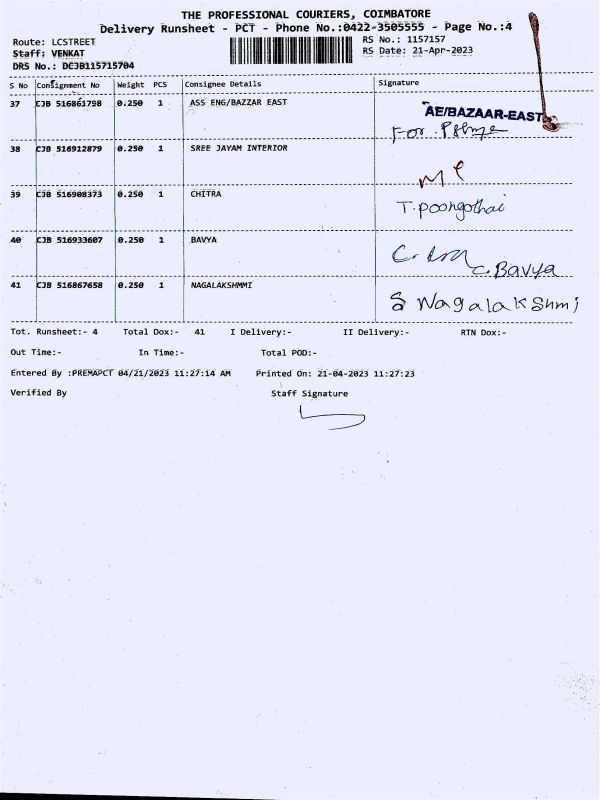 THE PROFESSIONAL COURIERS, COIMBATORE
Delivery Runsheet - PCT - Phone No.:0422-3505555 - Page No.:4
Route: LCSTREET RS No.: 1157157
Staff: VENKAT RS Date: 21-Apr-2023
DRS No.: DCJB115715704
S No Consignment No Weight PCS Consignee Details Signature
37 CJB 516861798 0.250 1 ASS ENG/BAZZAR EAST AE/BAZAAR-EAST
For
38 CJB 516912879 0.250 1 SREE JAYAM INTERIOR
39 CJB 516908373 0.250 1 CHITRA T.poongothai
40 CJB 516933607 0.250 1 BAVYA
C.Bavya
41 CJB 516867658 0.250 1 NAGALAKSHMMI S Nagalakshmi
Tot. Runsheet:- 4 Total Dox:- 41 I Delivery:- II Delivery:- RTN Dox:-
Out Time:- In Time:- Total POD:-
Entered By :PREMAPCT 04/21/2023 11:27:14 AM Printed On: 21-04-2023 11:27:23
Verified By Staff Signature